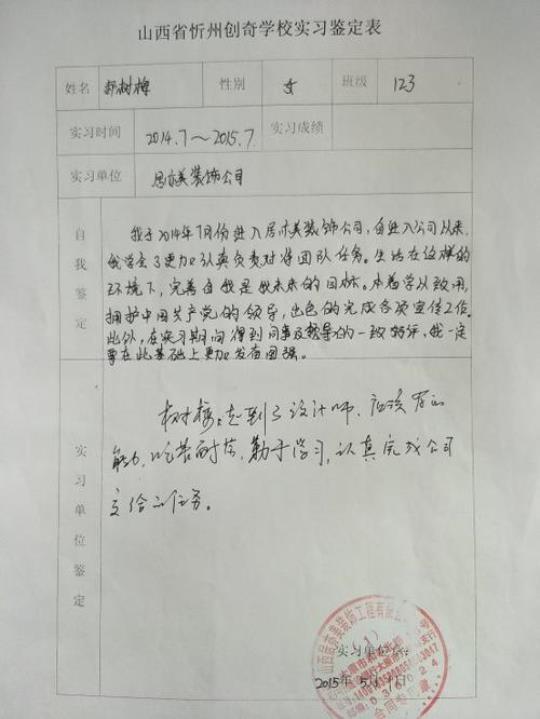 山西省忻州创奇学校实习鉴定表
姓名 郭树梅 性别 女 班级 123
实习时间 2014.7～2015.7 实习成绩
实习单位 居亦美装饰公司
自我鉴定
我于2014年7月份进入居亦美装饰公司,自进入公司以来,
我学会了更加认真负责对待团队任务。生活在这样的
环境下,完善自我是我未来的目标。本着学以致用,
拥护中国共产党的领导,出色的完成各项宣传工作。
此外,在实习期间得到同事及领导的一致好评,我一定
要在此基础上更加发奋图强。
实习单位鉴定
树梅达到了设计师应该有的
能力,吃苦耐劳,勤于学习,认真完成公司
交给的任务。
山西居亦美装饰工程有限公司
实习单位
2015年5月
合同专用章